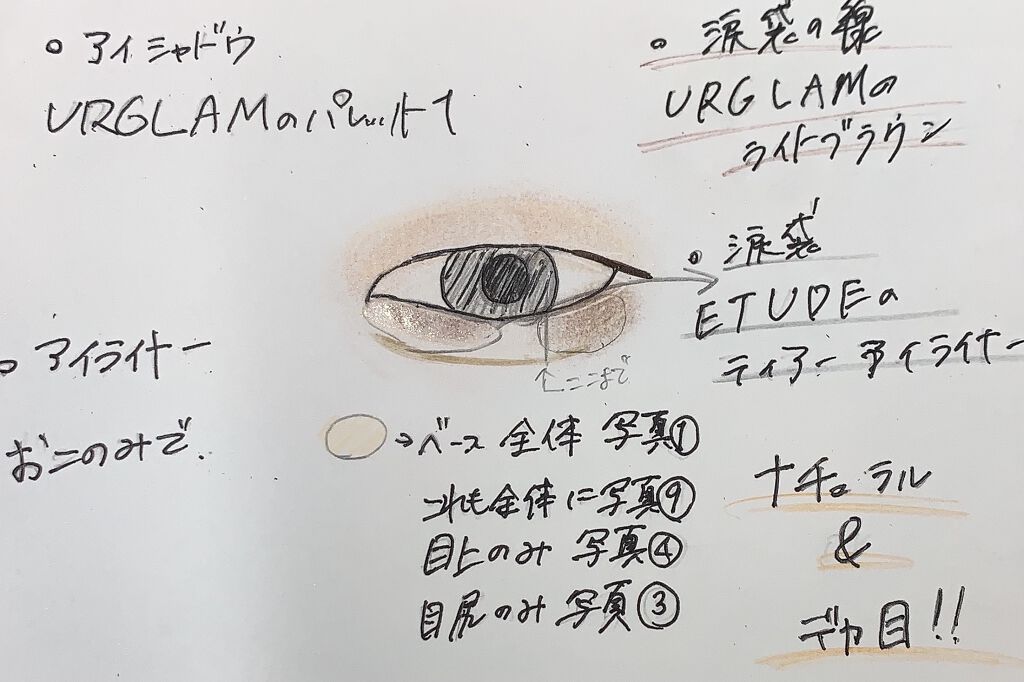 ○ アイシャドウ
URGLAMのパレット1
○ 涙袋の線
URGLAMの
ライトブラウン
○ 涙袋
ETUDEの
ティアーアイライナー
○ アイライナー
おこのみで.
↑ここまで
→ベース 全体 写真①
これも全体に写真⑨
目上のみ 写真④
目尻のみ 写真③
ナチュラル
&
デカ目!!